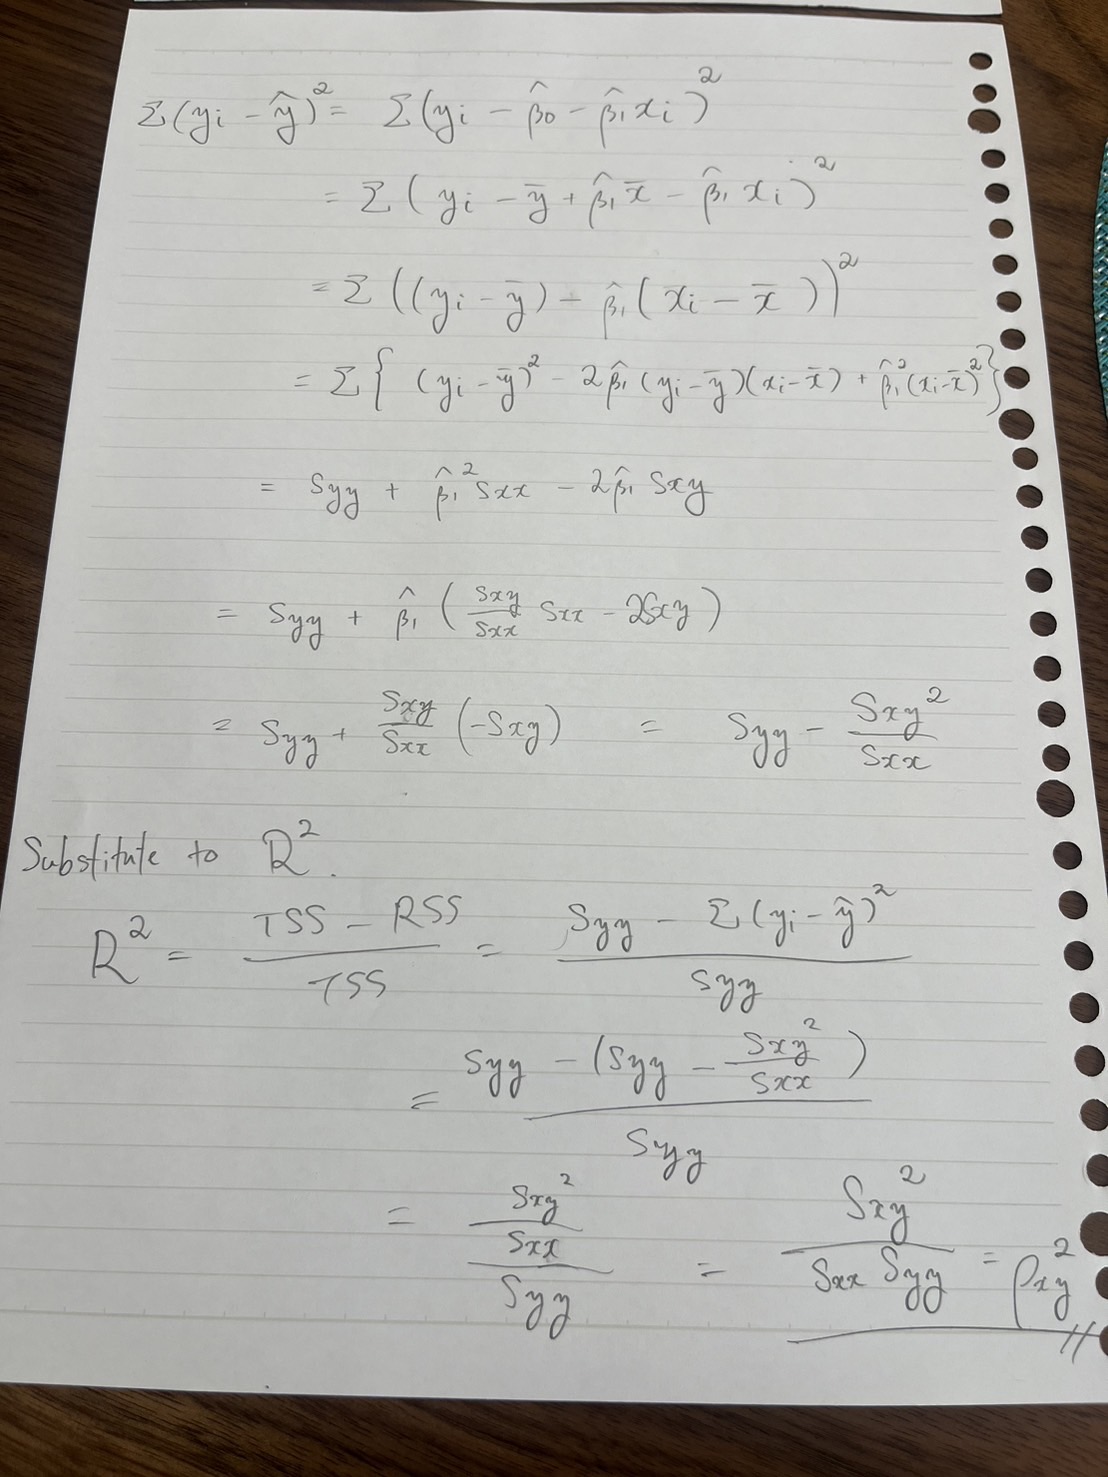 Σ(yi − ŷ)² = Σ(yi − β̂0 − β̂1xi)²
= Σ(yi − ȳ + β̂1x̄ − β̂1xi)²
= Σ((yi − ȳ) − β̂1(xi − x̄))²
= Σ{(yi − ȳ)² − 2β̂1(yi − ȳ)(xi − x̄) + β̂1²(xi − x̄)²}
= Syy + β̂1²Sxx − 2β̂1Sxy
= Syy + β̂1(Sxy/Sxx Sxx − 2Sxy)
= Syy + Sxy/Sxx (−Sxy) = Syy − Sxy²/Sxx
Substitute to R².
R² = (TSS − RSS)/TSS = (Syy − Σ(yi − ŷ)²)/Syy
= (Syy − (Syy − Sxy²/Sxx))/Syy
= (Sxy²/Sxx)/Syy = Sxy²/(Sxx Syy) = ρxy² //